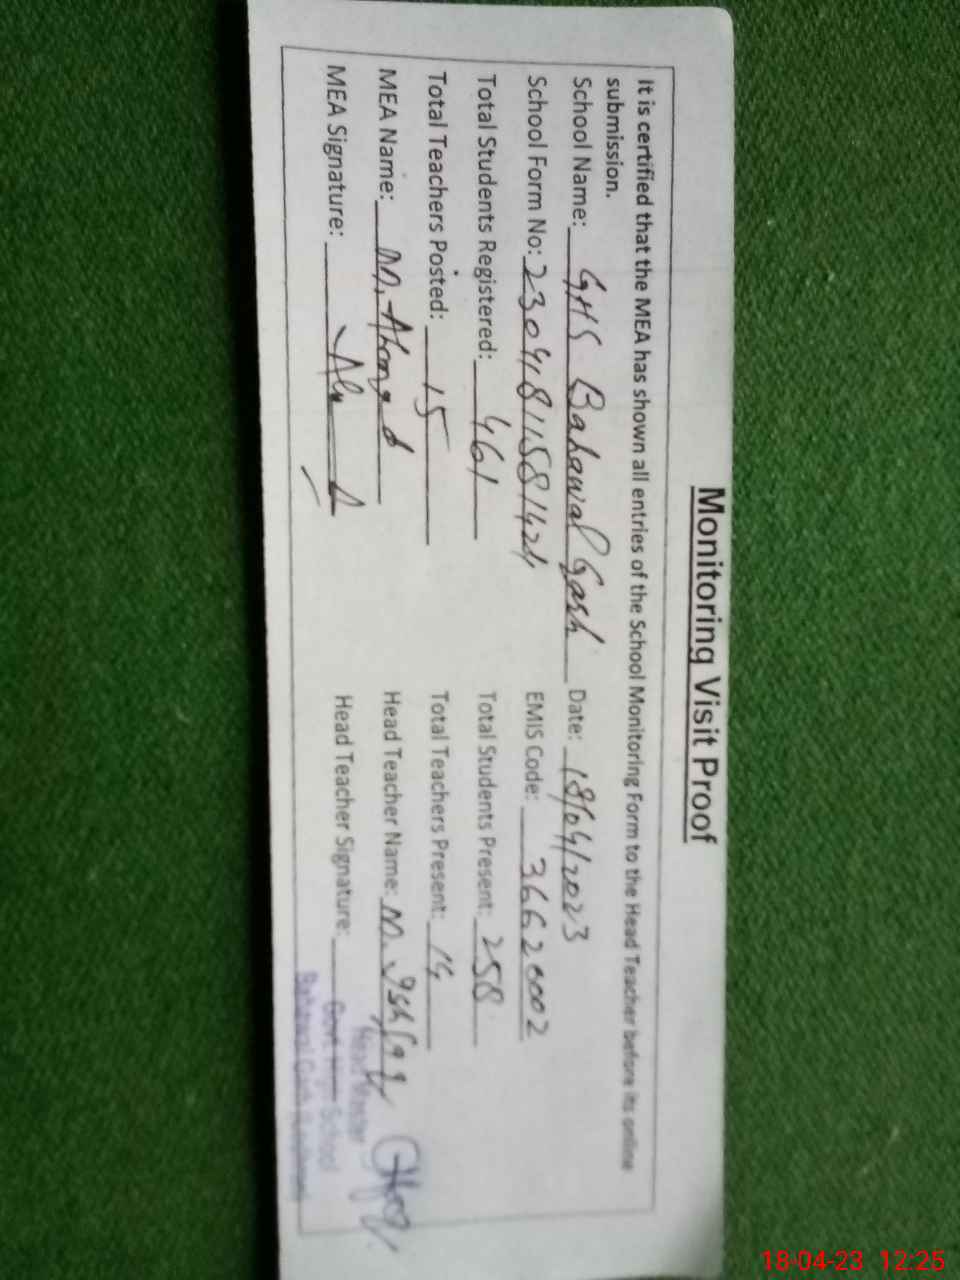 Monitoring Visit Proof
It is certified that the MEA has shown all entries of the School Monitoring Form to the Head Teacher before its online
submission.
School Name: GHS Bahawal Garh Date: 18/04/2023
School Form No: EMIS Code: 36620002
Total Students Registered: 461 Total Students Present: 258
Total Teachers Posted: 15 Total Teachers Present: 14
MEA Name: M. Ahmad Head Teacher Name: M. Ishfaq
MEA Signature: Head Teacher Signature:
Head Master
Govt. School
18-04-23 12:25